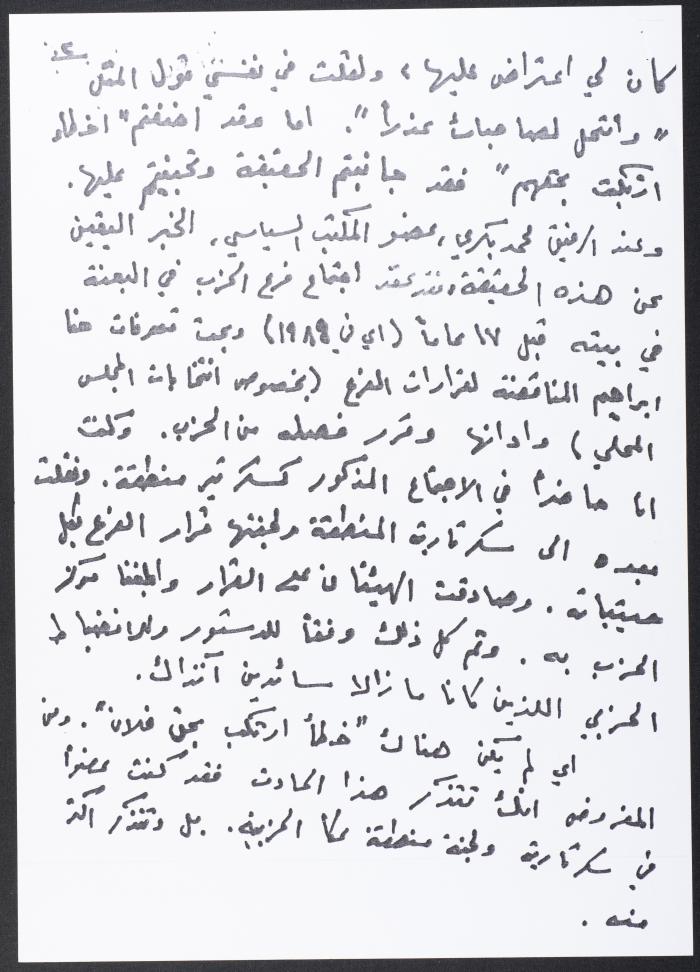 ٢.
كان لي اعتراض عليها، ولقلت في نفسي قول المثل
"وانتحل لصاحبك عذراً". اما وقد اضفتم "اخطاء
ارتكبت بحقهم" فقد جانبتم الحقيقة وتجنيتم عليها.
وعند الرفيق محمد بكري، عضو المكتب السياسي، الخبر اليقين
عن هذه الحقيقة، فقد عقد اجتماع فرع الحزب في البعنة
في بيته قبل ١٧ عاماً (اي في ١٩٨٩) وبحث تصرفات حنا
ابراهيم المناقضة لقرارات الفرع (بخصوص انتخابات المجلس
المحلي) وادانها وقرر فصله من الحزب. وكنت
انا حاضراً في الاجتماع المذكور كسكرتير منطقة. ونقلت
بعده الى سكرتارية المنطقة ولجنتها قرار الفرع بكل
حيثياته. وصادقت الهيئتان على القرار وابلغنا مركز
الحزب به. وتم كل ذلك وفقاً للدستور وللانضباط
الحزبي اللذين كانا ما زالا سائدين آنذاك.
اي لم يكن هناك "خطأ ارتكب بحق فلان". ومن
المفروض انك تتذكر هذا الحادث فقد كنت عضواً
في سكرتارية ولجنة منطقة عكا الحزبية. بل وتتذكر اكثر
منه.